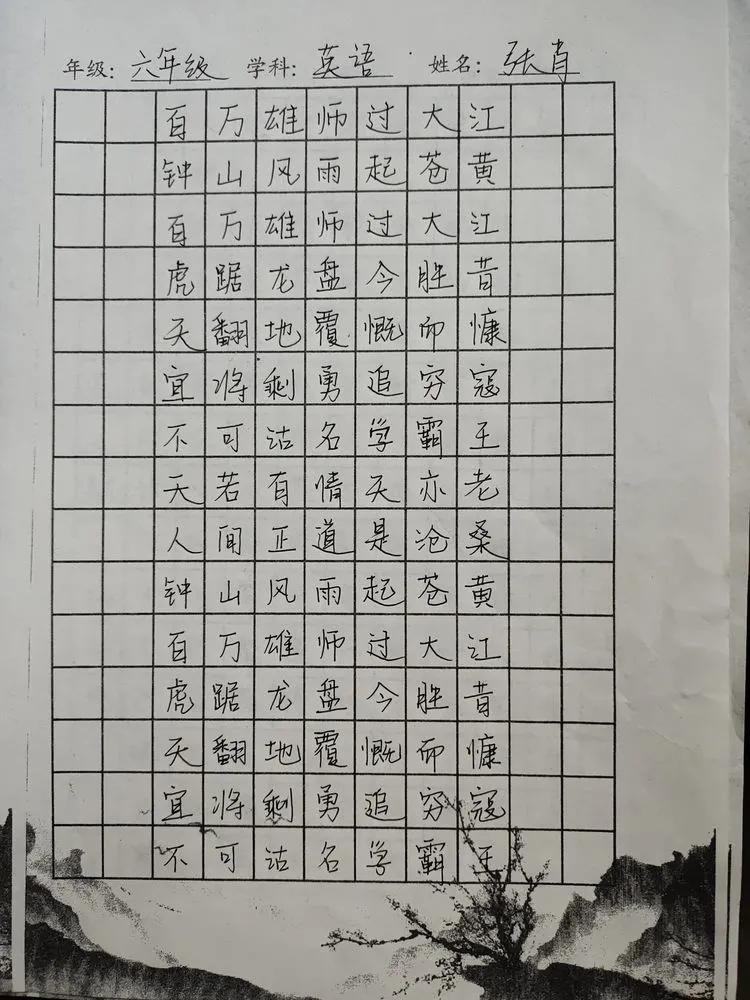 年级: 六年级 学科: 英语 姓名: 张肖
百万雄师过大江
钟山风雨起苍黄
百万雄师过大江
虎踞龙盘今胜昔
天翻地覆慨而慷
宜将剩勇追穷寇
不可沽名学霸王
天若有情天亦老
人间正道是沧桑
钟山风雨起苍黄
百万雄师过大江
虎踞龙盘今胜昔
天翻地覆慨而慷
宜将剩勇追穷寇
不可沽名学霸王